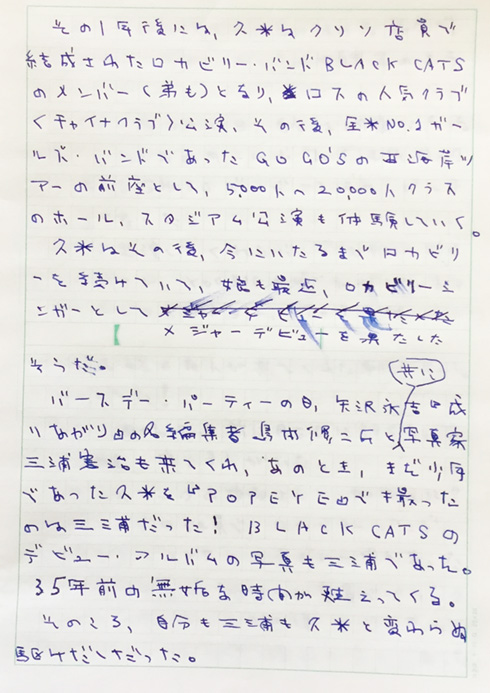 その1年後には、久米はクリソ店員で
結成されたロカビリー・バンドBLACK CATS
のメンバー(弟も)となり、ロスの人気クラブ
〈チャイナクラブ〉公演、その後、全米NO.1ガー
ルズ・バンドであったGO GO'Sの西海岸ツ
アーの前座として、5,000人〜20,000人クラス
のホール、スタジアム公演も体験していく。
久米はその後、今にいたるまでロカビリ
ーを続けていて、娘も最近、ロカビリーシ
ンガーとして
メジャーデビューを果たした
そうだ。
共に
バースデー・パーティーの日、矢沢永吉の成
りあがりの名編集者島本脩二氏と写真家
三浦憲治も来てくれ、あのとき、まだ少年
であった久米を『POPEYE』で撮った
のは三浦だった! BLACK CATSの
デビュー・アルバムの写真も三浦であった。
35年前の無垢な時間が甦えってくる。
そのころ、自分も三浦も久米と変わらぬ
駆けだしだった。